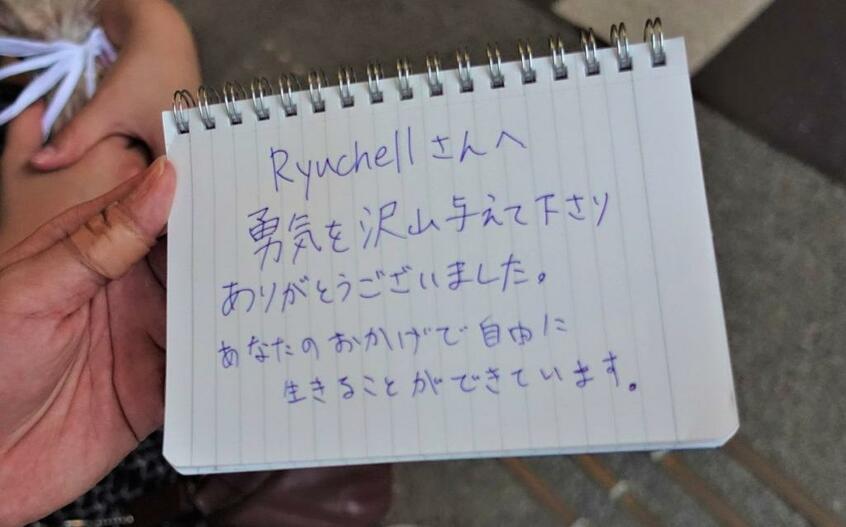 Ryuchellさんへ
勇気を沢山与えて下さり
ありがとうございました。
あなたのおかげで自由に
生きることができています。